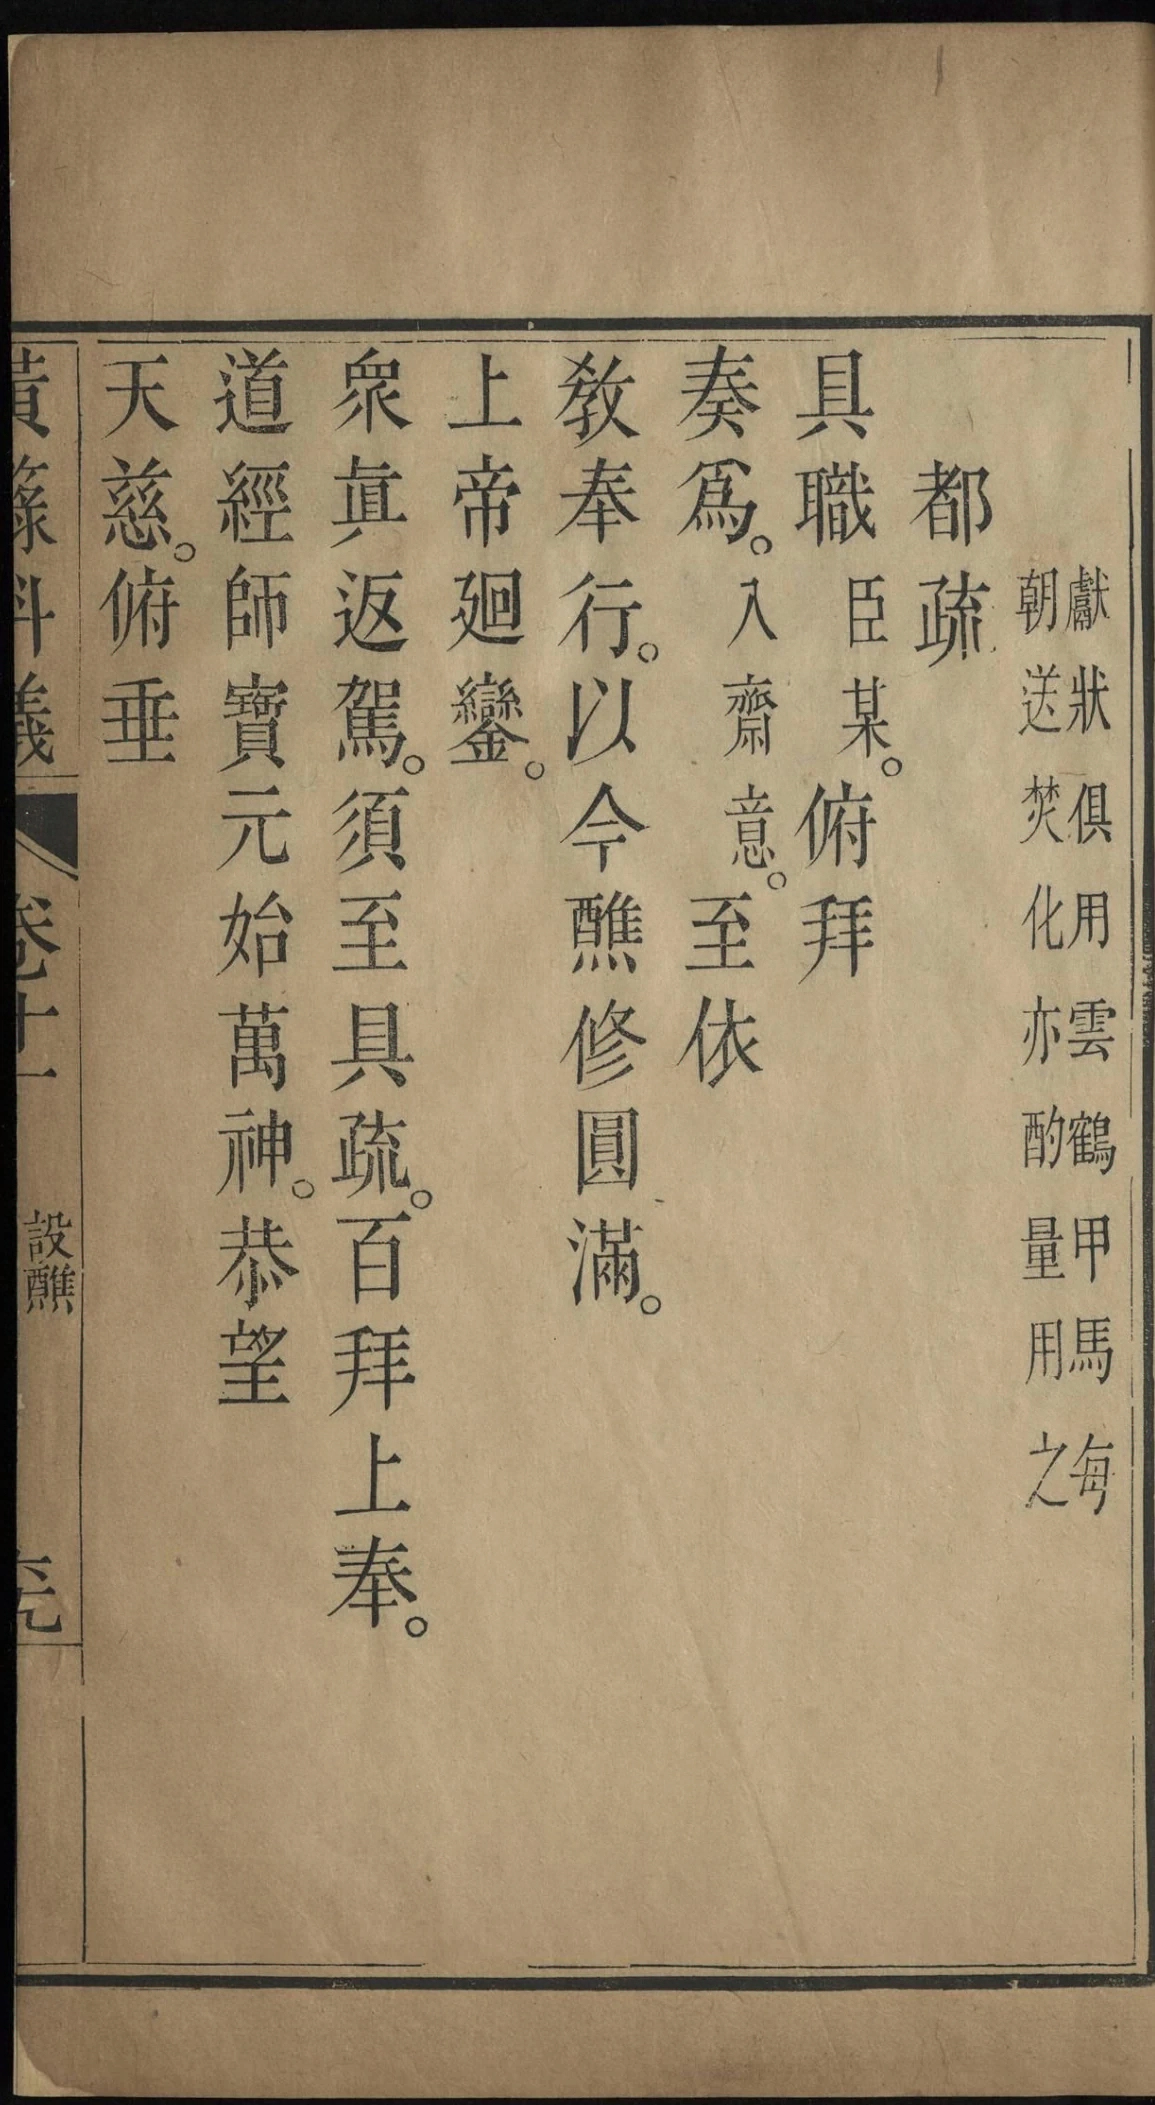 獻狀俱用雲鶴甲馬每
朝送焚化亦酌量用之
都疏
具職臣某。俯拜
奏爲。入齋意。至依
敎奉行。以今醮修圓滿。
上帝廻鑾。
衆眞返駕。須至具疏。百拜上奉。
道經師寶元始萬神。恭望
天慈。俯垂
黃籙科儀 卷十一 設醮